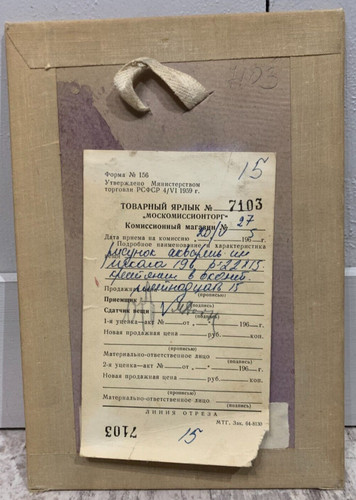 15
Форма № 156
Утверждено Министерством
торговли РСФСР 4/VI 1959 г.
ТОВАРНЫЙ ЯРЛЫК № 7103
"МОСКОМИССИОНТОРГ"
Комиссионный магазин № 27
Дата приема на комиссию 20/V 1965 г.
Подробное наименование и характеристика
рисунок акварель
школа 19в 22х15
крестьянин в
Продажная пятнадцать 15
(прописью)
Приемщик
(подпись)
Сдатчик вещи
(подпись)
1-я уценка—акт № от „ “ 196 г.
Новая продажная цена руб. коп.
(прописью)
Материально-ответственное лицо
(подпись)
2-я уценка—акт № от „ “ 196 г.
Новая продажная цена руб. коп.
(прописью)
Материально-ответственное лицо
(подпись)
ЛИНИЯ ОТРЕЗА
7103
МТГ. Зак. 04-8130
15